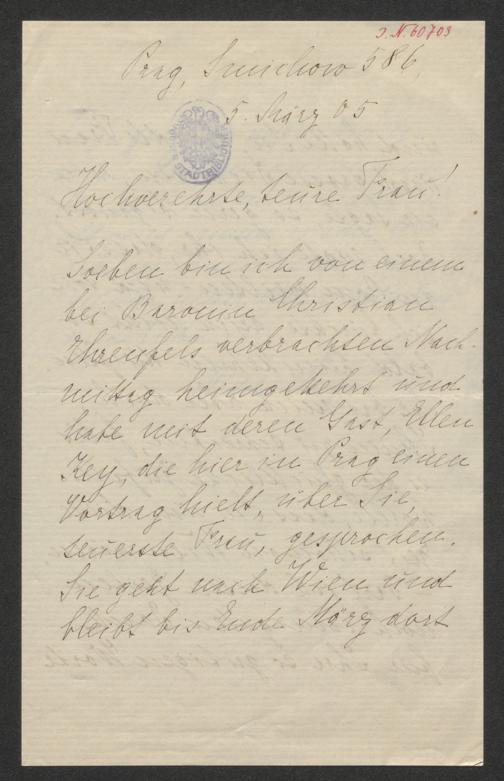 J. N. 60703
Prag, Smichow 586.
5. März 05
STADTBIBLIOTHEK
Hochverehrte, teure Frau!
Soeben bin ich von einem
bei Baronin Christian
Ehrenfels verbrachten Nach-
mittag heimgekehrt und
habe mit deren Gast, Ellen
Key, die hier in Prag einen
Vortrag hielt, über Sie,
teuerste Frau, gesprochen.
Sie geht nach Wien und
bleibt bis Ende März dort